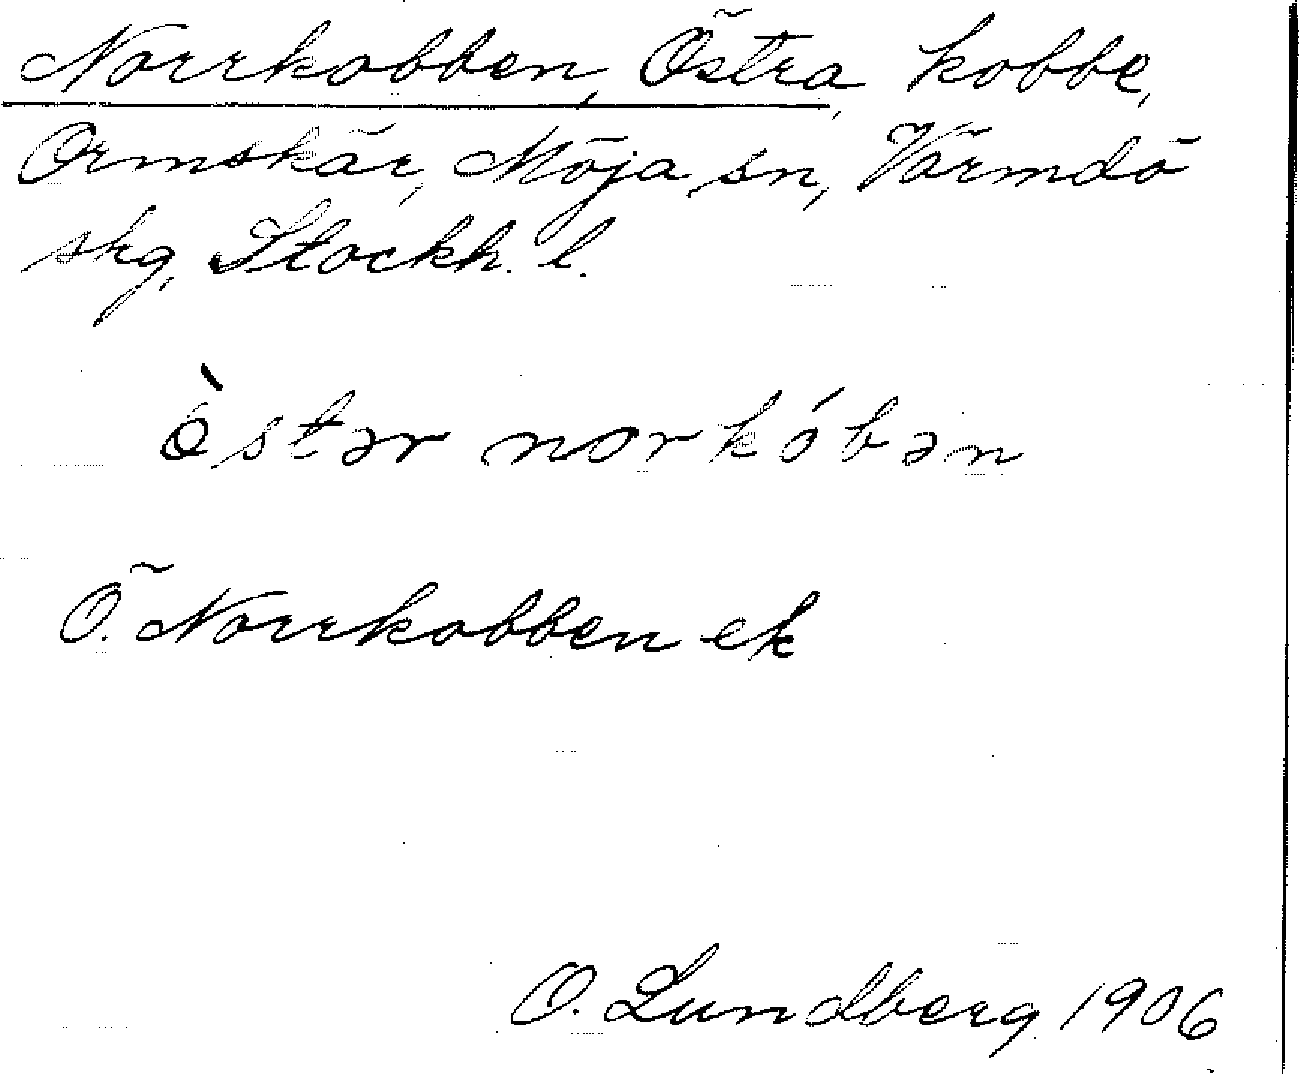 Norrkobben, Östra, kobbe,
Ormskär, Möja sn, Värmdö
skg, Stockh. l.
òstər norkóbən
Ö. Norrkobben ek
O. Lundberg 1906